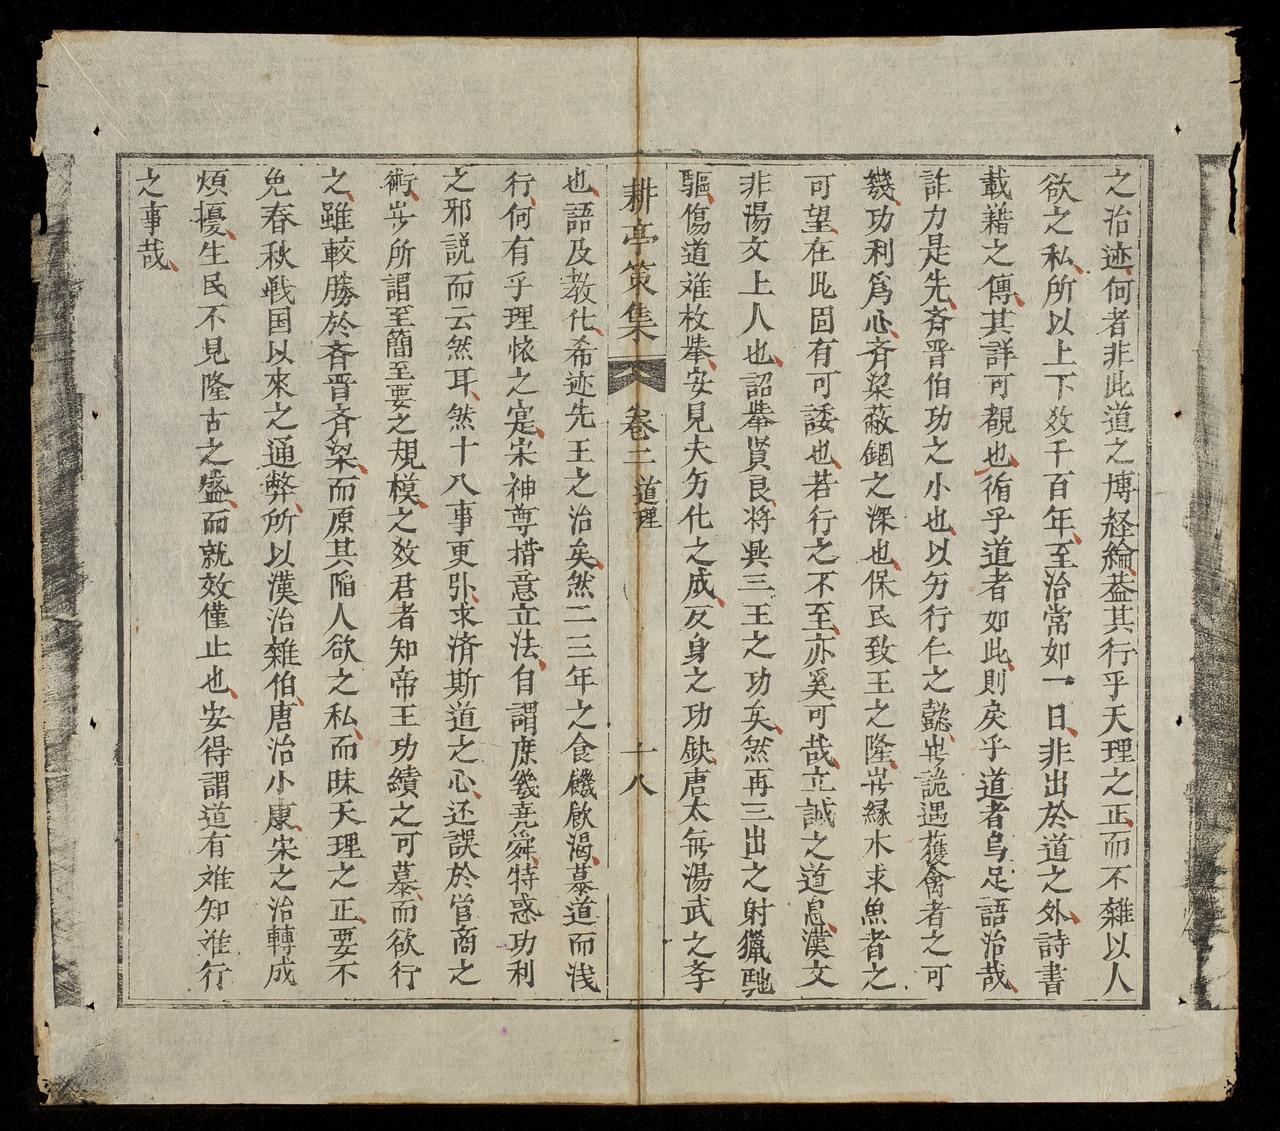 之治迹何者非此道之博経綸葢其行乎天理之正而不雜以人
欲之私所以上下效千百年至治常如一日非出於道之外詩書
載籍之傳其詳可覩也循乎道者如此則戾乎道者烏足語治哉
詐力是先斉晋伯功之小也以另行仁之懿岀詭遇獲禽者之可
幾功利爲心斉梁蔽錮之深也保民致王之隆岀縁木求魚者之
可望在此固有可諉也若行之不至亦奚可哉立誠之道息漢文
非湯文上人也詔挙賢良将興三王之功矣然再三出之射獵馳
驅傷道难枚挙安見夫另化之成反身之功缺唐太無湯武之李
耕亭策集 卷二 道理 十八
也語及教化希迹先王之治矣然二三年之食饑厭渇慕道而浅
行何有乎理怀之寔宋神尊措意立法自謂庶幾尭舜特惑功利
之邪説而云然耳然十八事更引求済斯道之心还誤於管商之
術岀所謂至簡至要之規模之效君者知帝王功績之可慕而欲行
之雖較勝於斉晋斉梁而原其陥人欲之私而昧天理之正要不
免春秋戦国以來之通弊所以漢治雜伯唐治小康宋之治轉成
煩擾生民不見隆古之盛而就效僅止也安得謂道有难知难行
之事哉